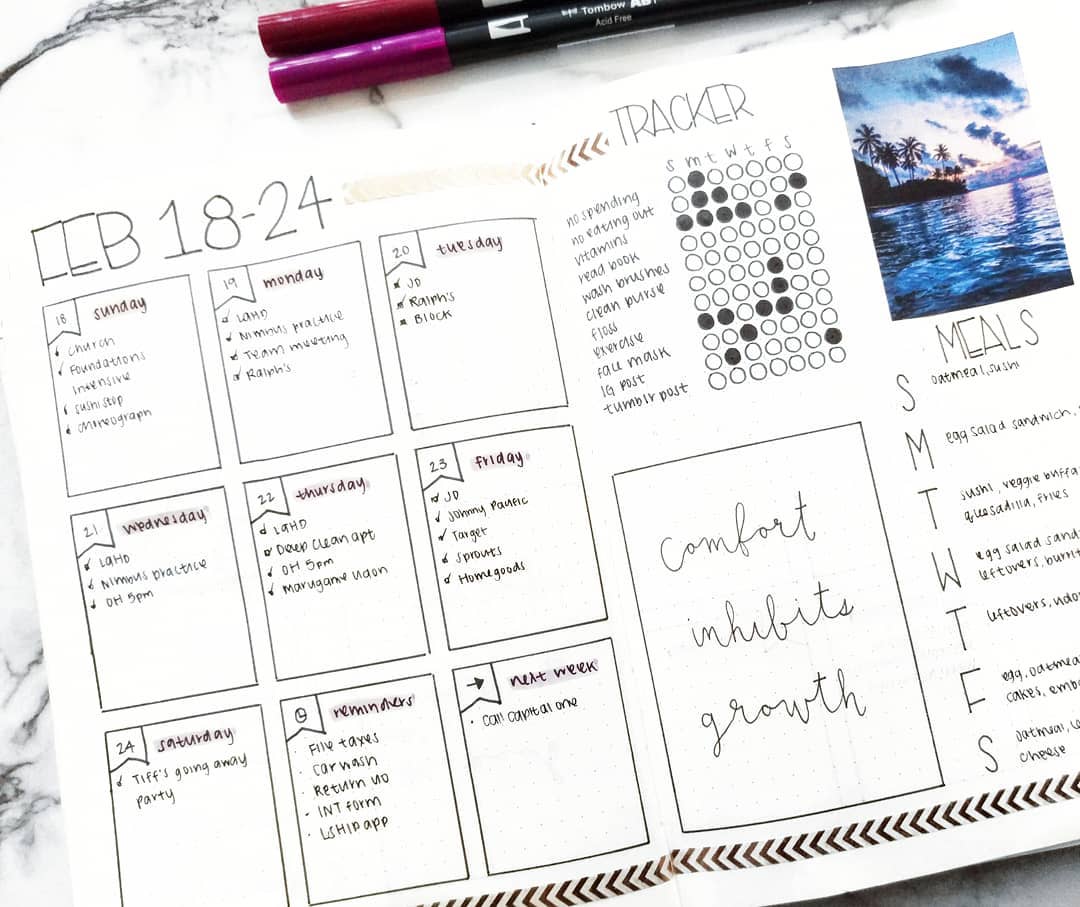 Tombow
Acid Free
FEB 18-24
18 sunday
Church
Foundations
Intensive
sushi stop
choreograph
19 monday
LAHD
Nimbus practice
Team meeting
Ralph's
20 tuesday
JD
Ralph's
BLOCK
21 wednesday
LAHD
Nimbus practice
OH 5pm
22 thursday
LAHD
Deep clean apt
OH 5pm
Marugame Udon
23 friday
JD
Johnny Pacific
Target
Sprouts
Homegoods
24 saturday
Tiff's going away
party
reminders
File taxes
Car wash
Return UO
INT form
LSHIP app
next week
Call Capital one
TRACKER
s m t w t f s
no spending
no eating out
vitamins
read book
wash brushes
clean purse
floss
exercise
face mask
IG post
tumblr post
comfort
inhibits
growth
MEALS
S oatmeal, sushi
M egg salad sandwich,
T sushi, veggie
quesadilla, fries
W egg salad
leftovers,
T leftovers,
F egg,
cakes,
S oatmeal,
cheese